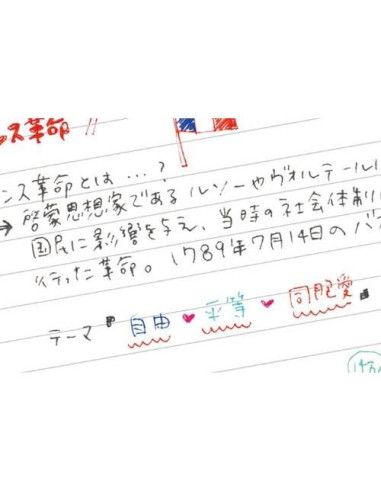 ンス革命 !!
ンス革命とは…?
→ 啓蒙思想家であるルソーやヴォルテール
国民に影響を与え、当時の社会体制
行った革命。1789年7月14日のバ
テーマ 自由 ♥ 平等 ♥ 同胞愛